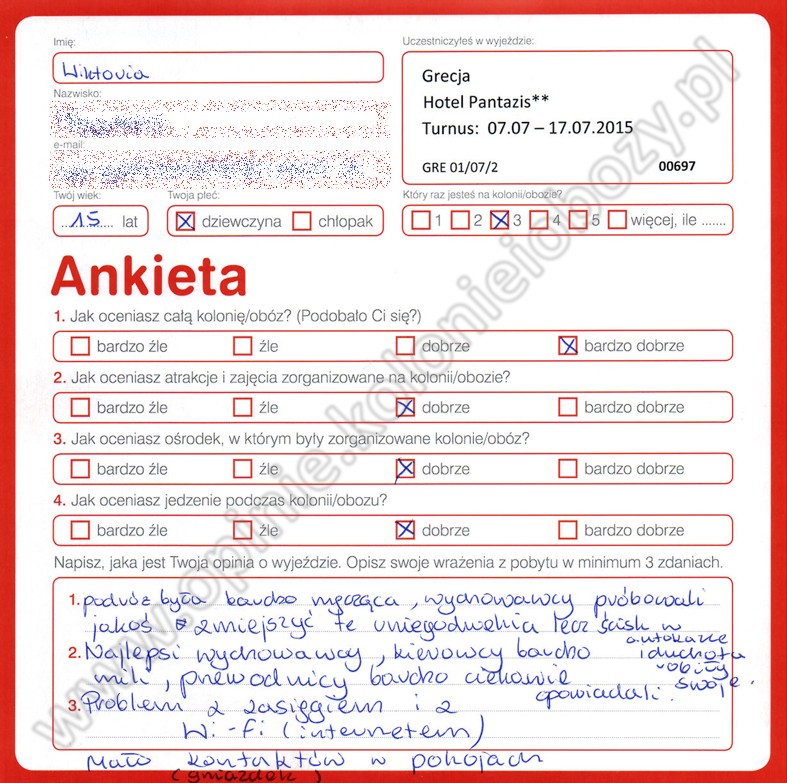 Imię:
Wiktoria
Nazwisko:
e-mail:
Twój wiek:
15 lat
Twoja płeć:
dziewczyna chłopak
Uczestniczyłeś w wyjeździe:
Grecja
Hotel Pantazis**
Turnus: 07.07 – 17.07.2015
GRE 01/07/2 00697
Który raz jesteś na kolonii/obozie?
1 2 3 4 5 więcej, ile .......
Ankieta
1. Jak oceniasz całą kolonię/obóz? (Podobało Ci się?)
bardzo źle źle dobrze bardzo dobrze
2. Jak oceniasz atrakcje i zajęcia zorganizowane na kolonii/obozie?
bardzo źle źle dobrze bardzo dobrze
3. Jak oceniasz ośrodek, w którym były zorganizowane kolonie/obóz?
bardzo źle źle dobrze bardzo dobrze
4. Jak oceniasz jedzenie podczas kolonii/obozu?
bardzo źle źle dobrze bardzo dobrze
Napisz, jaka jest Twoja opinia o wyjeździe. Opisz swoje wrażenia z pobytu w minimum 3 zdaniach.
1. podróż była bardzo męcząca, wychowawcy próbowali
jakoś zmiejszyć te uniegodwehia lecz ścisk w
autokarze
i duchota
robiły
swoje.
2. Najlepsi wychowawcy, kierowcy bardzo
mili, przewodnicy bardzo ciekawie
opowiadali.
3. Problem z zasięgiem i z
Wi-Fi (internetem)
Mało kontaktów w pokojach
(gniazdek)
www.opinie.kolonieiobozy.pl